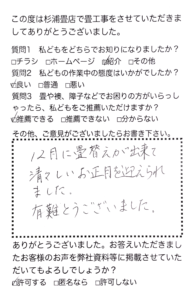 この度は杉浦畳店で畳工事をさせていただきま
してありがとうございました。
質問1 私どもをどちらでお知りになりましたか？
□チラシ □ホームページ ☑紹介 □その他
質問2 私どもの作業中の態度はいかがでしたか？
☑良い □普通 □悪い
質問3 畳や襖、障子などでお困りの方がいらっし
ゃったら、私どもをご推薦いただけますか？
☑推薦できる □推薦できない □分からない
その他、ご意見がございましたらお書き下さい。
12月に畳替えが出来て
清々しいお正月を迎えられ
ました。
有難とうございました。
ありがとうございました。お答えいただきまし
たお客様のお声を弊社資料等に掲載させていた
だいてもよろしいでしょうか？
☑許可する □匿名なら □許可しない